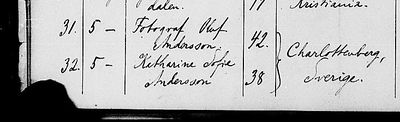 dalen. 17 Kristiania.
31. 5 – Fotograf Oluf
Andersson. 42.
Charlottenberg,
32. 5 – Katharine Sofie
Andersson 38 Sverige.